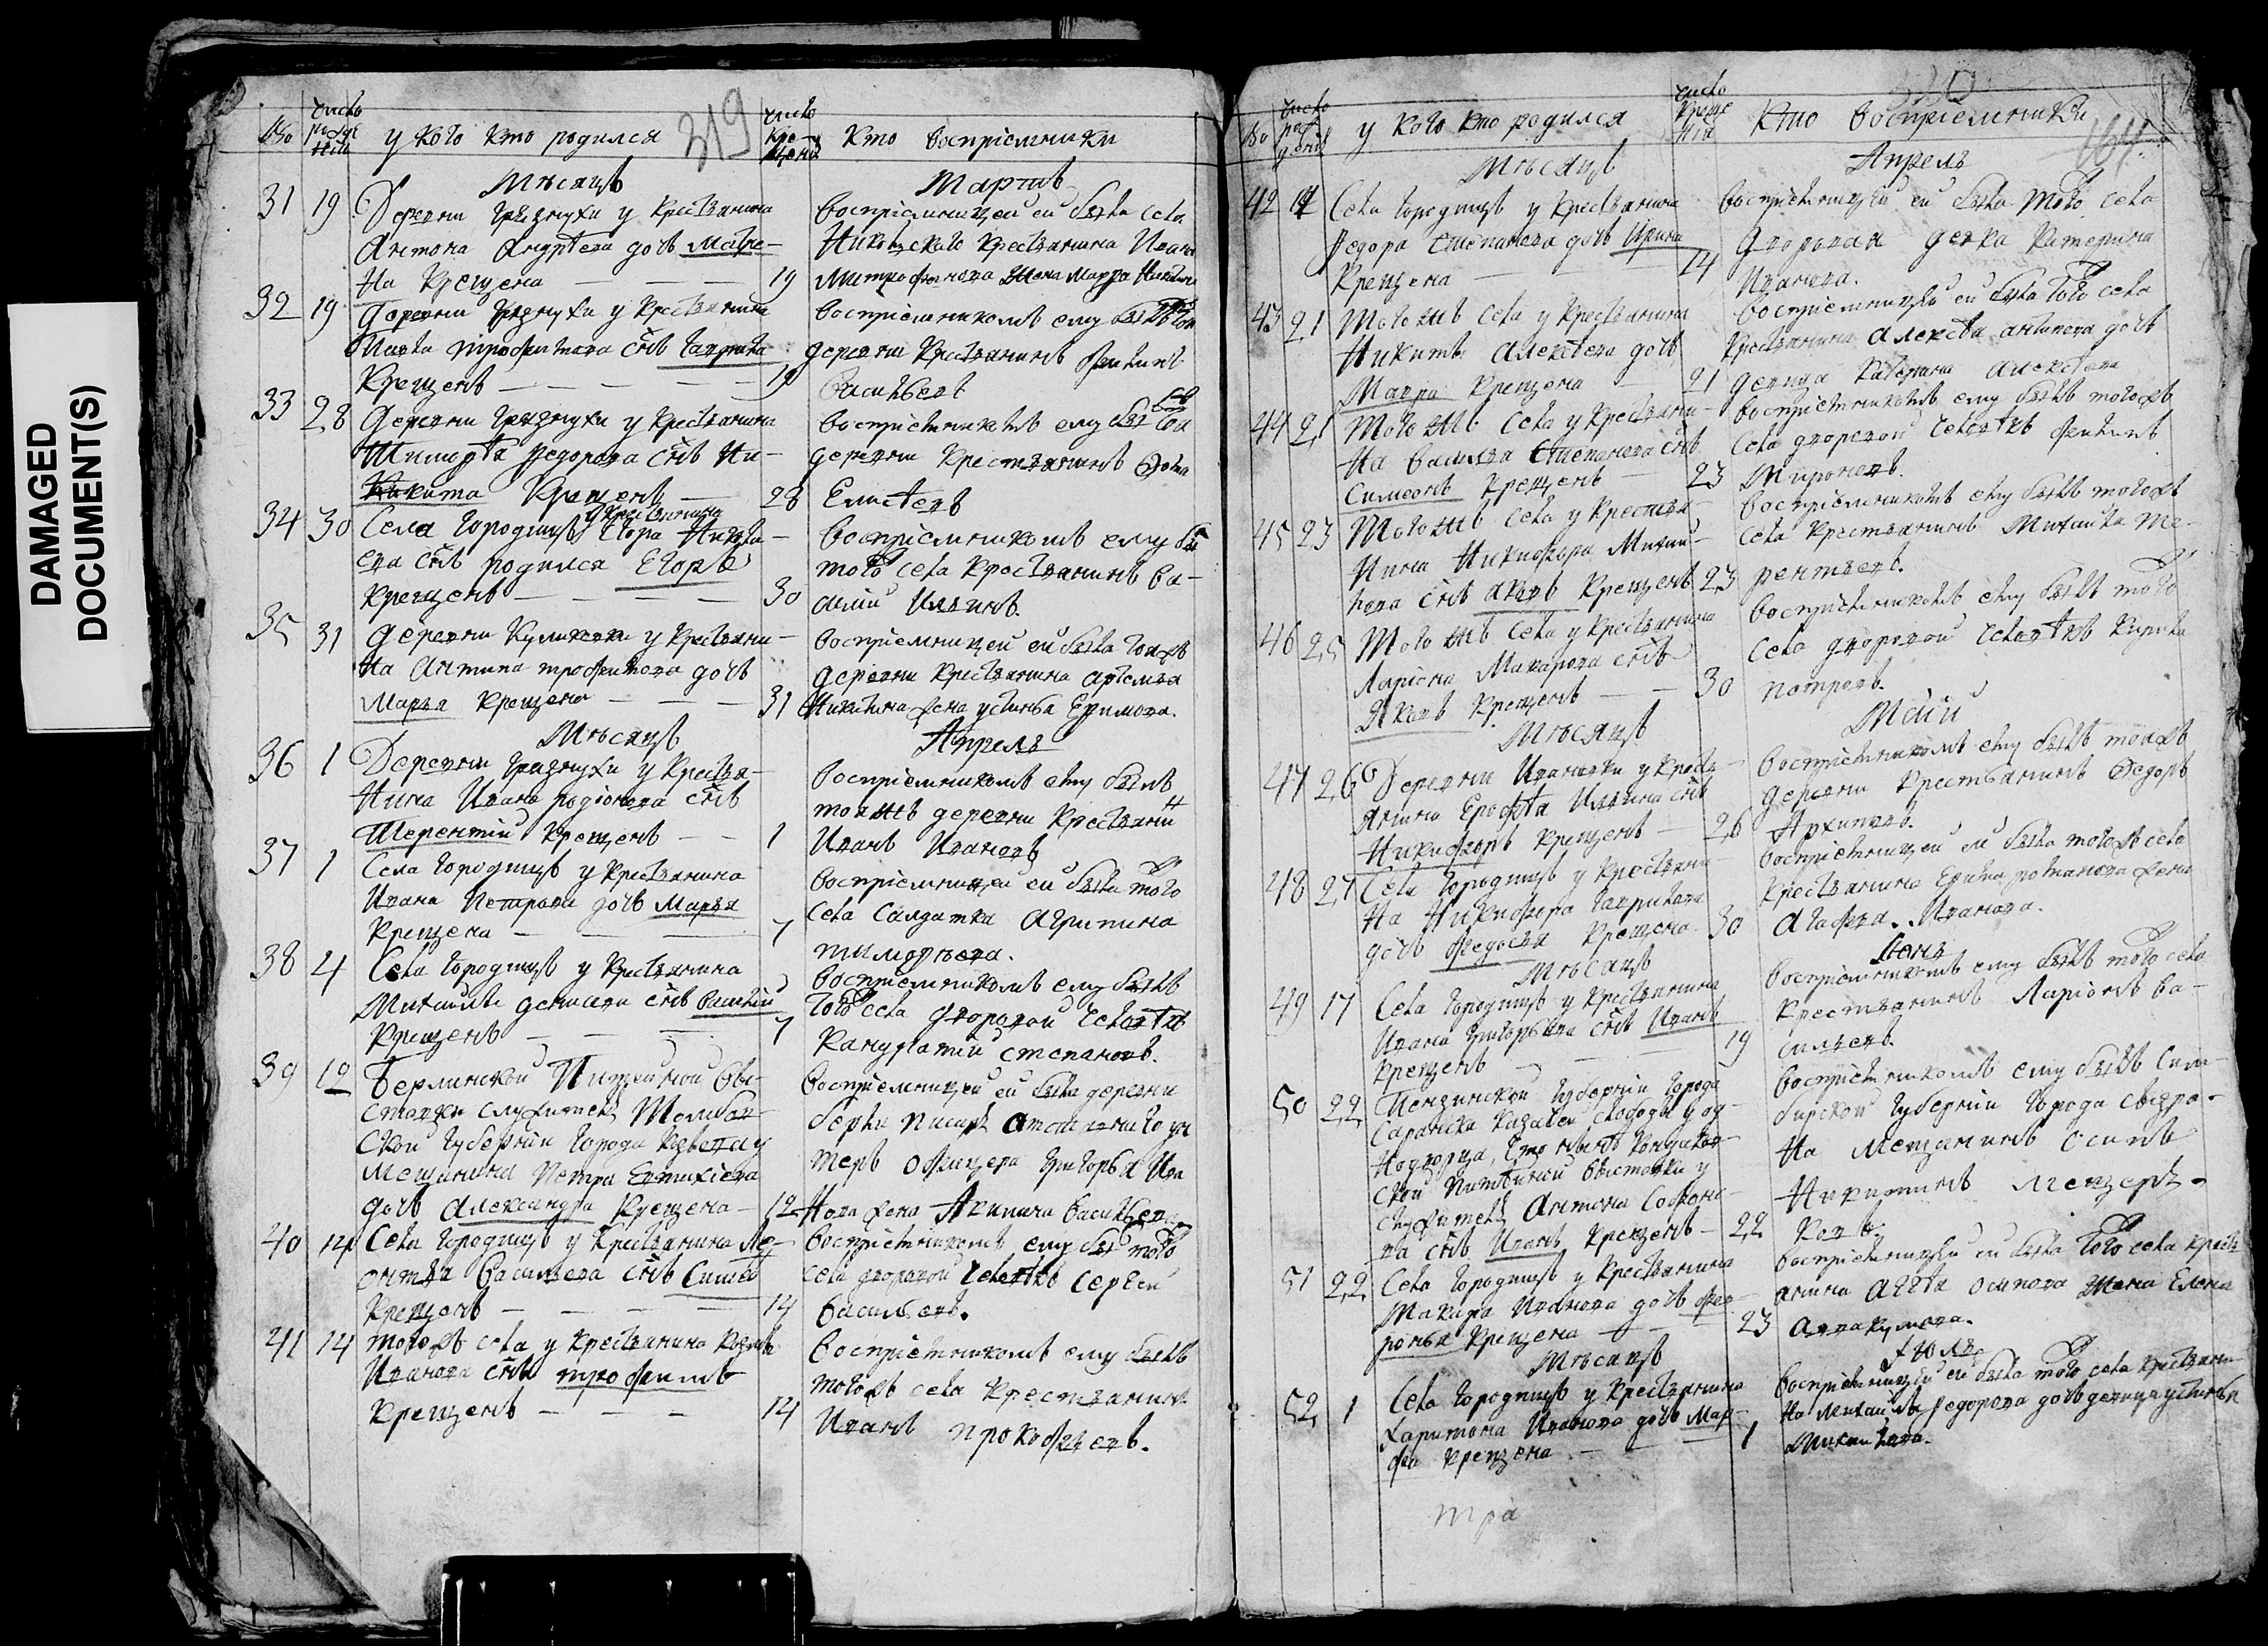 DAMAGED
DOCUMENT(S)
319
число рождения
у кого кто родился
число крещения
кто воспріемники
Мѣсяцъ Мартъ
31 19 Деревни Грязнухи у крестьянина
Антона Андрѣева дочь Матре-
на крещена 19
воспріемницей ей была села
Никольского крестьянина Ивана
Митрофанова жена Марфа
32 19 деревни Грязнухи у крестьянина
Павла трофимова снъ Гаврила
крещенъ 19
воспріемникомъ ему былъ той
деревни крестьянинъ Филипъ
Васильевъ
33 28 деревни Грязнухи у крестьянина
Тимофѣя Федорова снъ Ни-
кита крещенъ 28
воспріемникомъ ему былъ той
деревни крестьянинъ Фома
Елисѣевъ
34 30 Села Городищъ у крестьянина Егора
снъ родился Егоръ
крещенъ 30
воспріемникомъ ему
того села крестьянинъ Ва-
силій Ильинъ.
35 31 деревни Куликовки у крестьяни-
на Антипа трофимова дочь
Марья крещена 31
воспріемницей ей была тояжъ
деревни крестьянина артемья
Никитина жена устинья Ефимова.
Мѣсяцъ Апрель
36 1 Деревни Грязнухи у крестья-
нина Ивана родіонова снъ
Терентій крещенъ 1
воспріемникомъ ему былъ
тояжъ деревни крестьянин
Иванъ Ивановъ
37 1 Села Городищъ у крестьянина
Ивана Петрова дочь Марья
крещена 7
воспріемницей ей была того
села салдатка Агрипина
тимофѣева.
38 4 Села Городищъ у крестьянина
Михайлы денисова снъ Василій
крещенъ 7
воспріемникомъ ему былъ
того села дворовой человѣкъ
степановъ.
39 12 Берлинской Питейной вы-
ставки служителя Тамбов-
ской губерніи города у
мещанина Петра
дочь Александра крещена 12
воспріемницей ей была деревни
офицера григорья Ива
нова жена Акилина Васильева
40 14 Села Городищъ у крестьянина Ле-
онтья Васильева снъ Симео
крещенъ 14
воспріемникомъ ему былъ того
села дворовой человѣкъ Сергѣй
Васильевъ.
41 14 тогожъ села у крестьянина Козмы
Иванова снъ трофимъ
крещенъ 14
воспріемникомъ ему былъ
тогожъ села крестьянинъ
Иванъ прокофьевъ.
164
число рожденія
у кого кто родился
число крещенія
кто воспріемники
Мѣсяцъ Апрель
42 14 Села Городищъ у крестьянина
Федора степанова дочь Ирина
крещена 14
воспріемницей ей была того села
дворовая девка катерина
Иванова.
43 21 Тогожъ села у крестьянина
Никиты Алексѣева дочь
Мавра крещена 21
воспріемницей ей была того села
крестьянина алексѣя антипова дочь
девица катерина алексѣева
44 21 Тогожъ села у крестьяни-
на василья Степанова снъ
Симеонъ крещенъ 23
воспріемникомъ ему былъ тогожъ
села дворовой человѣкъ филипъ
Мироновъ.
45 23 Тогожъ села у крестья-
нина Никифора Михай-
лова снъ Яковъ крещенъ 23
воспріемникомъ ему былъ тогожъ
села крестьянинъ Михайла те-
рентьевъ.
46 25 Тогожъ села у крестьянина
Ларіона Макарова снъ
Яковъ крещенъ 30
воспріемникомъ ему былъ того
села дворовой человѣкъ кирила
петровъ.
Мѣсяцъ Маій
47 26 Деревни Ивановки у кресть-
янина Ерофѣя Ильина снъ
Никифоръ крещенъ 26
воспріемникомъ ему былъ тояжъ
деревни крестьянинъ Федоръ
Архиповъ.
48 27 Села Городищъ у крестьяни-
на Никифора Гаврилова
дочь Федосья крещена 30
воспріемницей ей была тогожъ села
крестьянина Ефима романова жена
Агафья Иванова.
Мѣсяцъ Іюнь
49 17 Села Городищъ у крестьянина
Ивана Григорьева снъ Иванъ
крещенъ 19
воспріемникомъ ему былъ того села
крестьянинъ Ларіонъ Ва-
сильевъ.
50 22 Пензинской Губерніи города
Саранска казачей слободы у од-
нодворца,
ской Питейной выставки у
служителя Антона
ва снъ Иванъ крещенъ 22
воспріемникомъ ему былъ Сим-
бирской губерніи города сызра-
на мещанинъ осипъ
Никитинъ
51 22 Села Городищъ у крестьянина
Макара Иванова дочь Фев-
ронья крещена 23
воспріемницей ей была того села кресть
янина Авѣя осипова жена Елена
Аввакумова.
Мѣсяцъ Іюль
52 1 Села Городищъ у крестьянина
Харитона Иванова дочь Мар-
фа крещена 1
воспріемницей ей была того села крестьяни-
на михайлы федорова дочь девица устинья
Михайлова.
тра